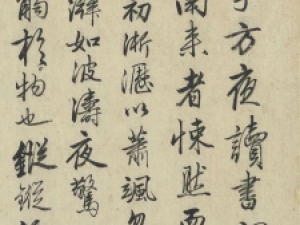 子方夜讀書
南来者悚然而
初淅瀝以蕭颯忽
湃如波濤夜驚
觸於物也鏦鏦